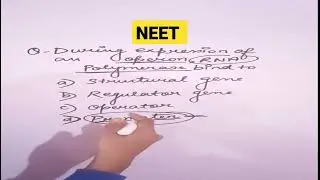 NEET
Q- During expression of
an operon, RNA
Polymerase bind to
a) Structural gene
b) Regulator gene
c) Operator
d) Promoter